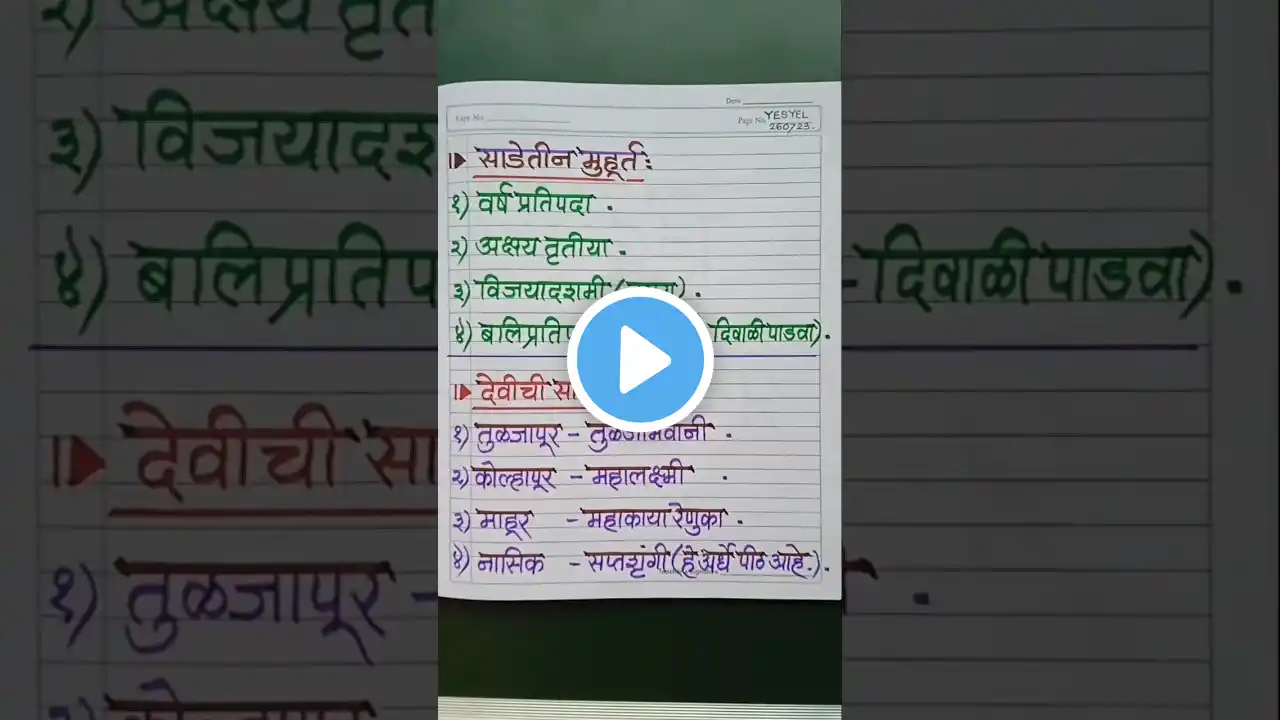 Date
Expt. No.
Page No. YESYEL
260723.
साडेतीन मुहूर्त :
१) वर्ष प्रतिपदा .
२) अक्षय तृतीया .
३) विजयादशमी ( ) .
४) बलिप्रतिप दिवाळी पाडवा) .
देवीची सा
१) तुळजापूर - तुळजाभवानी .
२) कोल्हापूर - महालक्ष्मी .
३) माहूर - महाकाया रेणुका .
४) नासिक - सप्तशृंगी (हे अर्धे पीठ आहे.) .